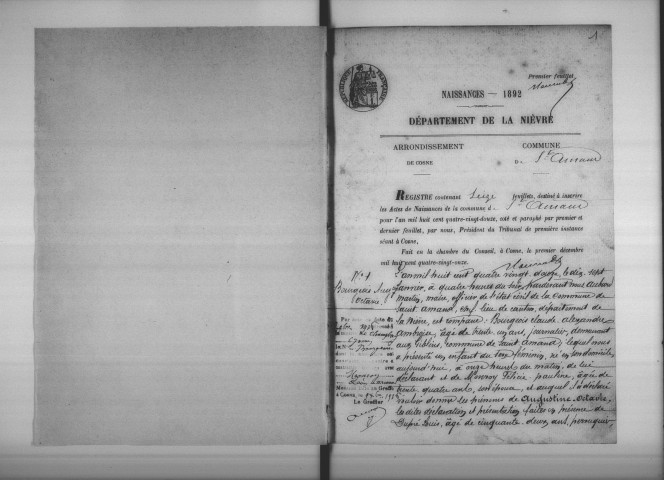 1
Premier feuillet
RÉPUBLIQUE FRANÇAISE
NAISSANCES — 1892
DÉPARTEMENT DE LA NIÈVRE
ARRONDISSEMENT
DE COSNE
COMMUNE
D St Amand
REGISTRE contenant seize feuillets, destiné à inscrire
les Actes de Naissances de la commune d St Amand
pour l'an mil huit cent quatre-vingt-douze, coté et paraphé par premier et
dernier feuillet, par nous, Président du Tribunal de première instance
séant à Cosne,
Fait en la chambre du Conseil, à Cosne, le premier décembre
mil huit cent quatre-vingt-onze.
N° 1
Bourgeois
Octavie
L'an mil huit cent quatre vingt douze, le dix sept
janvier, à quatre heures du soir, pardevant nous
Martin, maire, officier de l'état civil de la commune de
Saint Amand, chef lieu de canton, département de
la Nièvre, est comparu: Bourgeois Claude Alexandre
Ambroise, âgé de trente un ans, journalier, demeurant
aux, commune de Saint Amand; lequel nous
a présenté un enfant du sexe féminin, né en son domicile
aujourd'hui, à onze heures du matin, de lui
déclarant et de Félicie Pauline, âgée de
trente quatre ans, son épouse, et auquel il a déclaré
vouloir donner les prénoms de Augustine Octavie,
les dites déclaration et présentation faites en présence de
Dupré Louis, âgé de cinquante deux ans, perruquier
Le Greffier